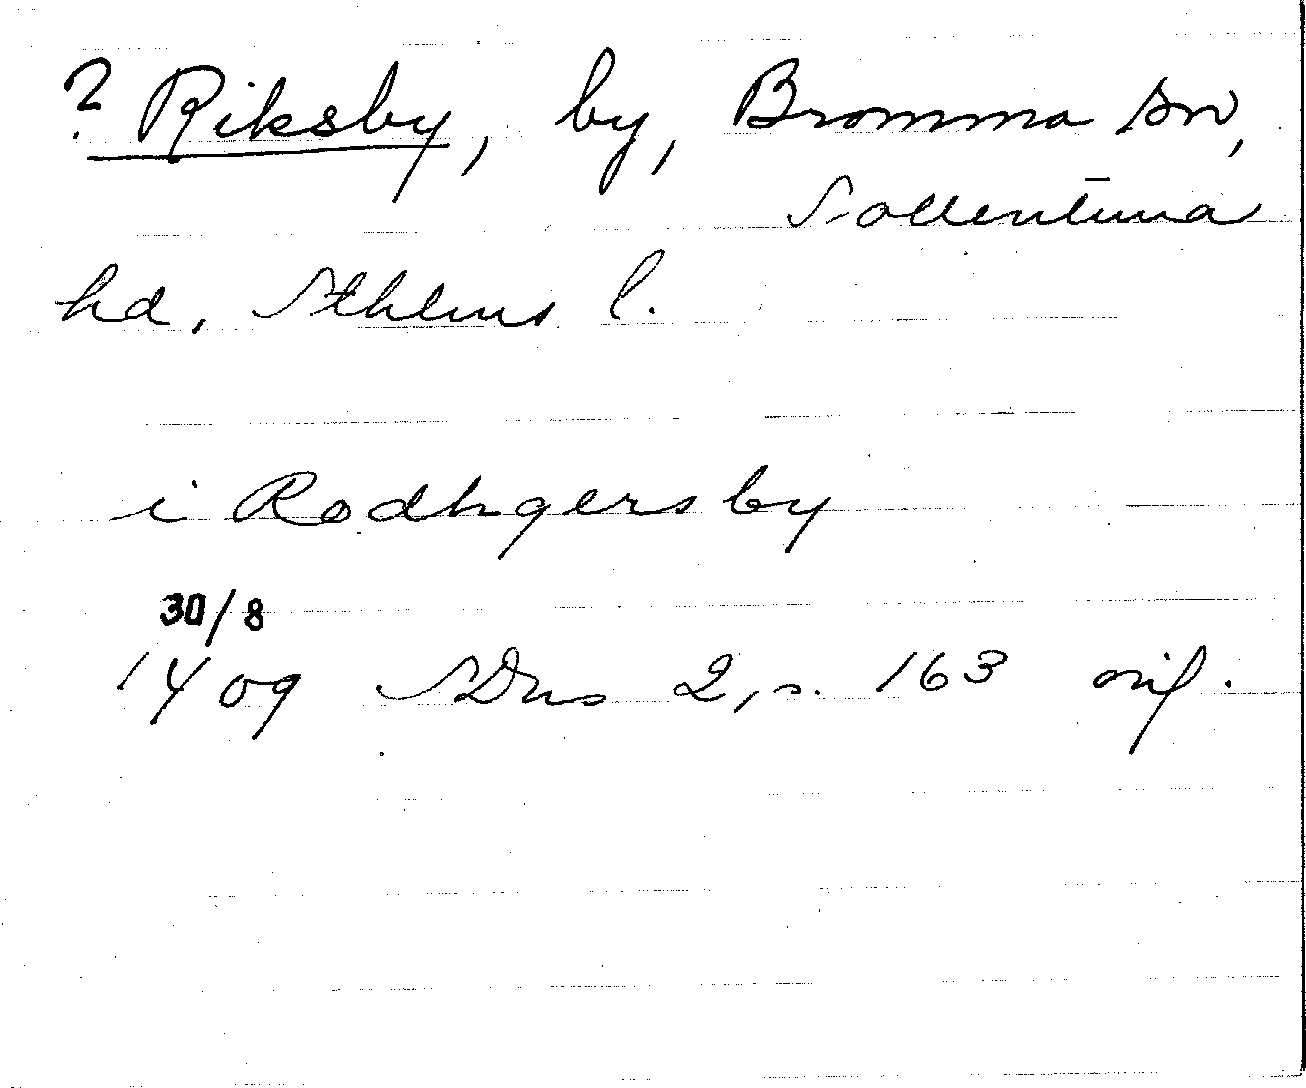 ? Riksby, by, Bromma sn,
Sollentuna
hd, Sthlms l.
i Rodhgersby
30/8
1409 SDns 2, s. 163 orig.